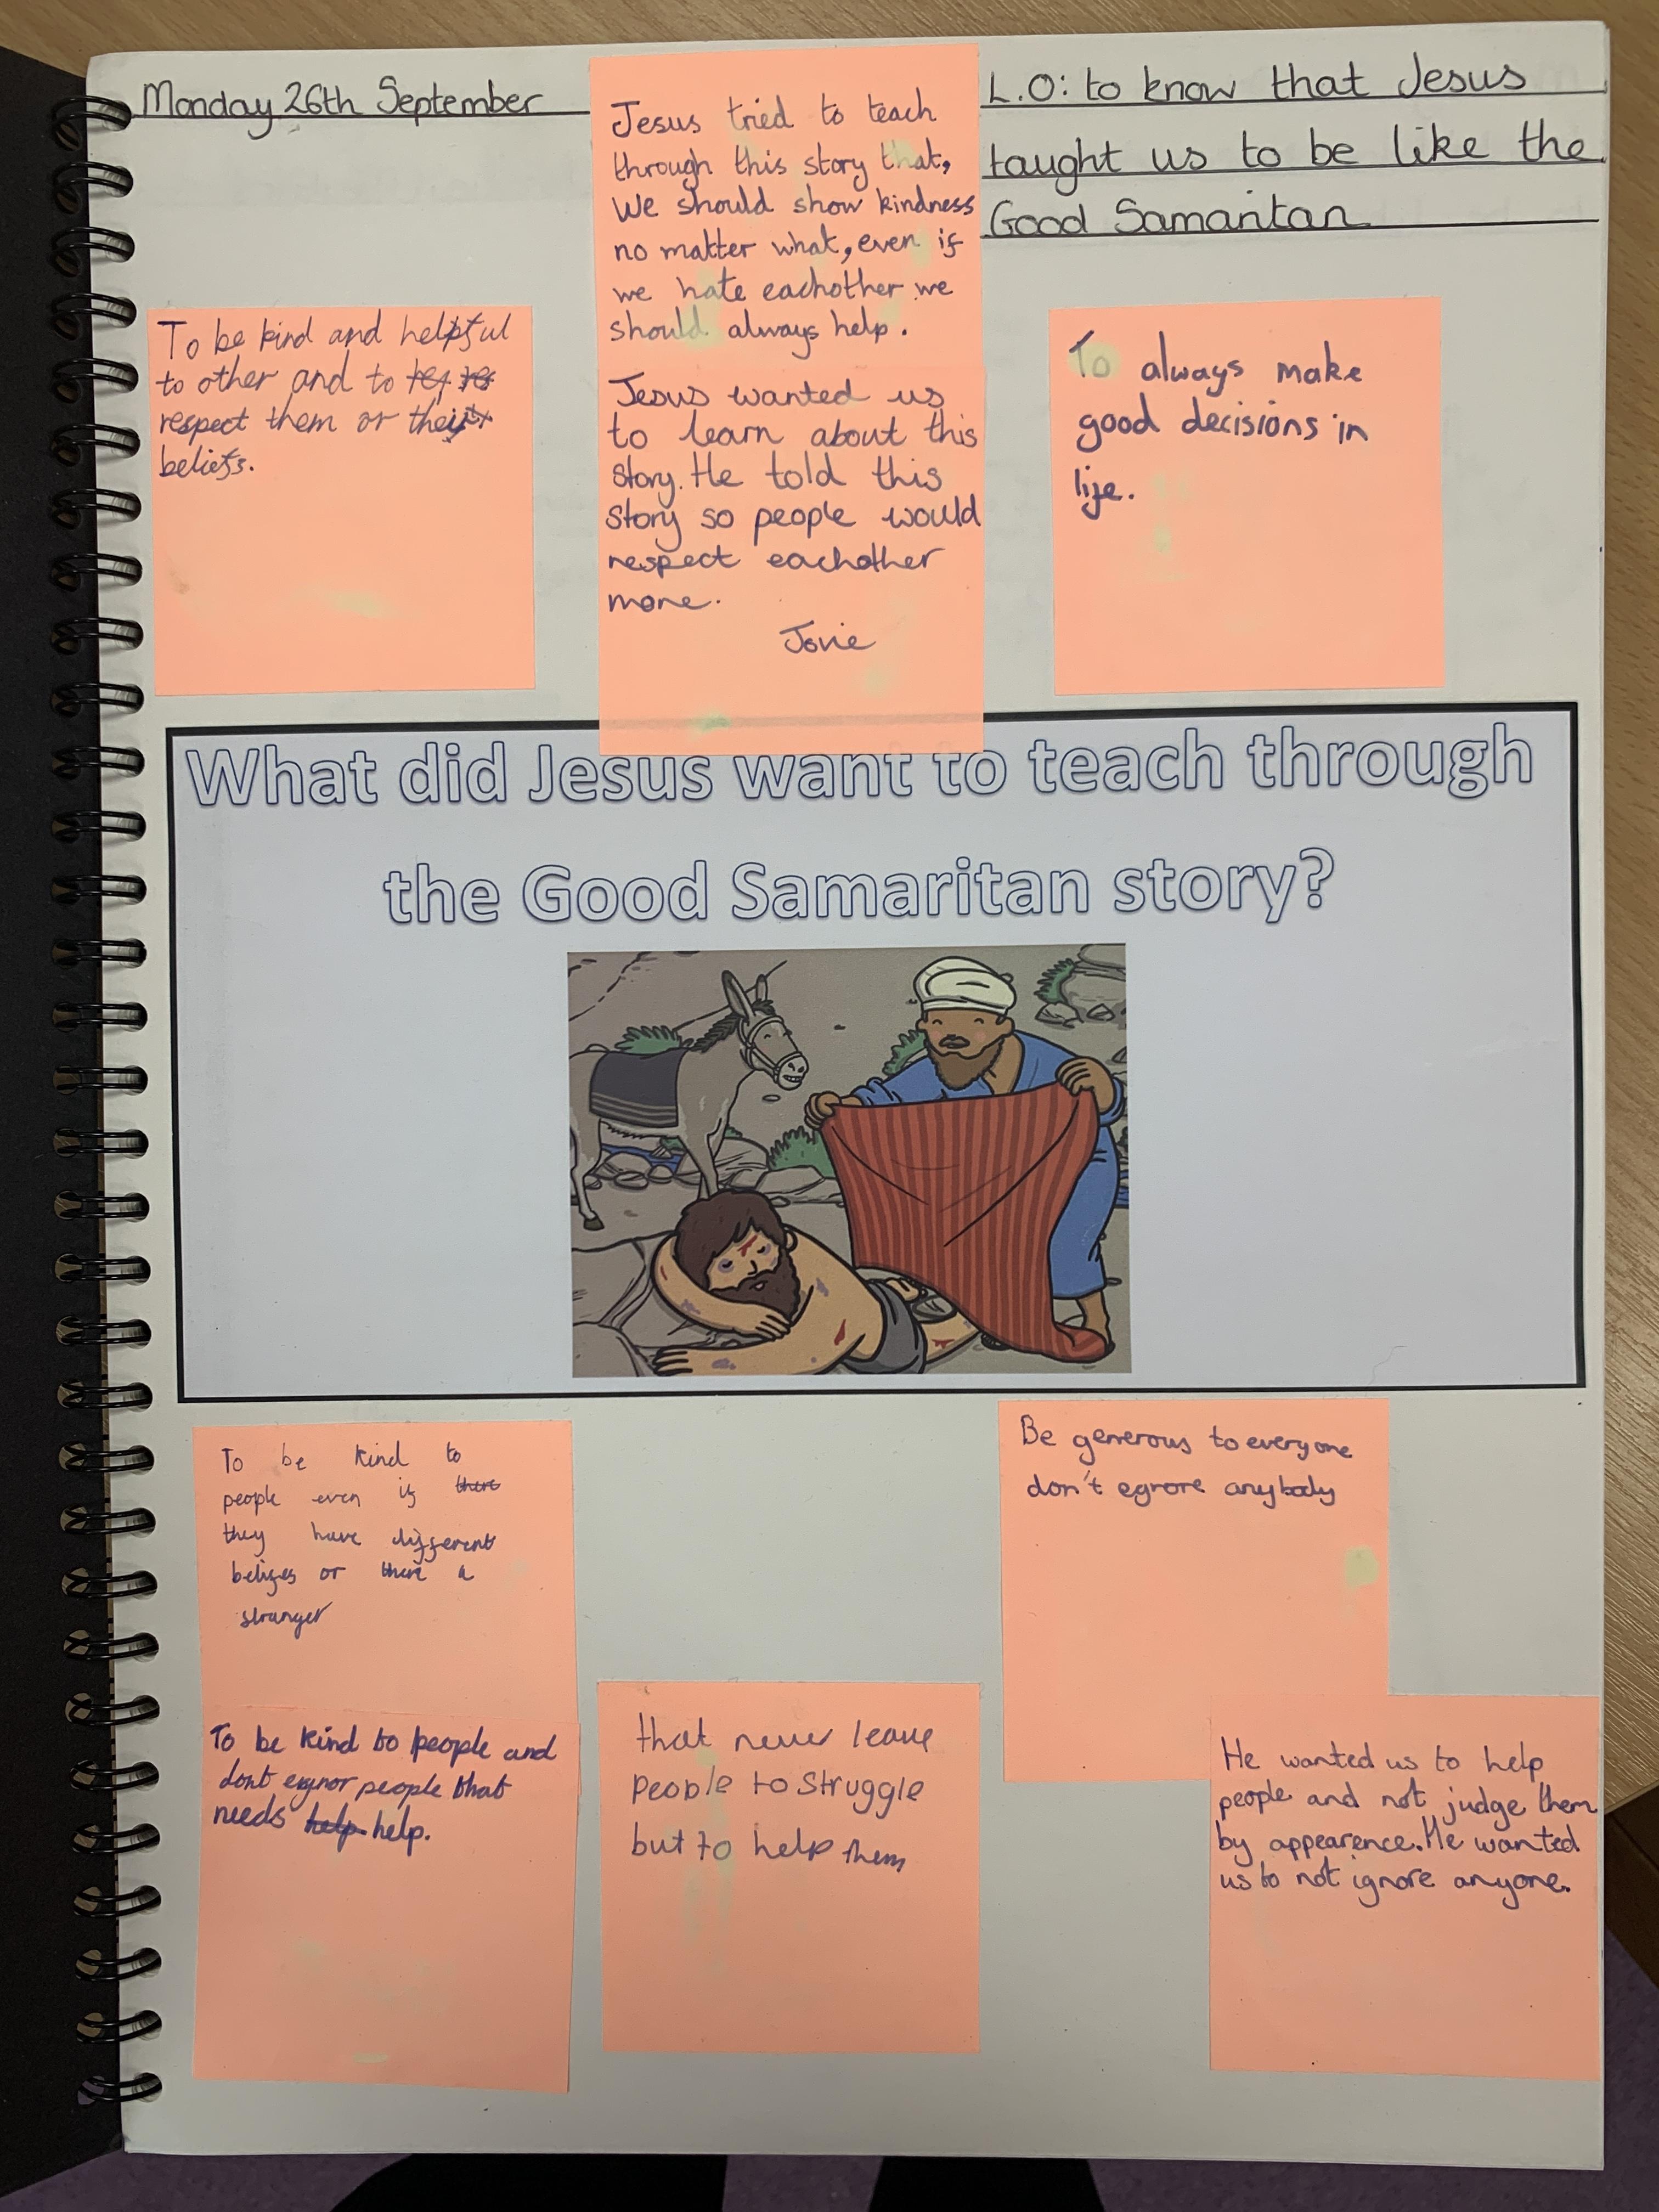 Monday 26th September
L.O: to know that Jesus
taught us to be like the
Good Samaritan
Jesus tried to teach
through this story that,
We should show kindness
no matter what, even if
we hate eachother we
should always help.
To be kind and helpful
to other and to
respect them or their
beliefs.
Jesus wanted us
to learn about this
story. He told this
story so people would
respect eachother
more.
To always make
good decisions in
life.
What did Jesus want to teach through
the Good Samaritan story?
To be kind to
people even if there
they have different
belifes or there a
stranger
Be generous to everyone
don't egnore anybody
To be kind to people and
dont egnor people that
needs help. help.
that never leave
people to struggle
but to help them
He wanted us to help
people and not judge them
by appearence. He wanted
us to not ignore anyone.